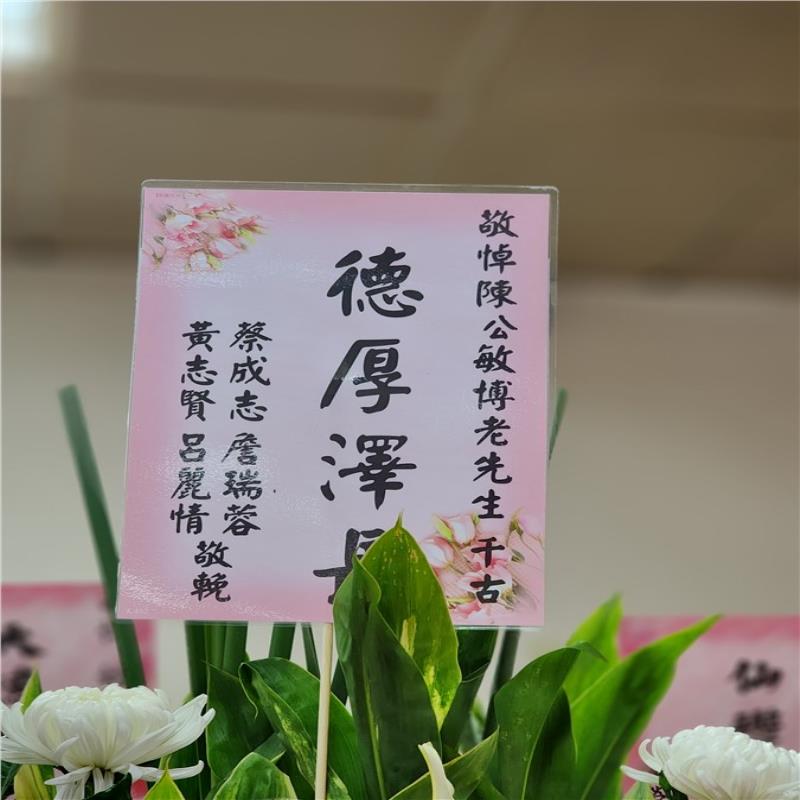 敬悼陳公敏博老先生千古
德厚澤長
蔡成志 詹瑞蓉
黃志賢 呂麗情
敬輓
仙